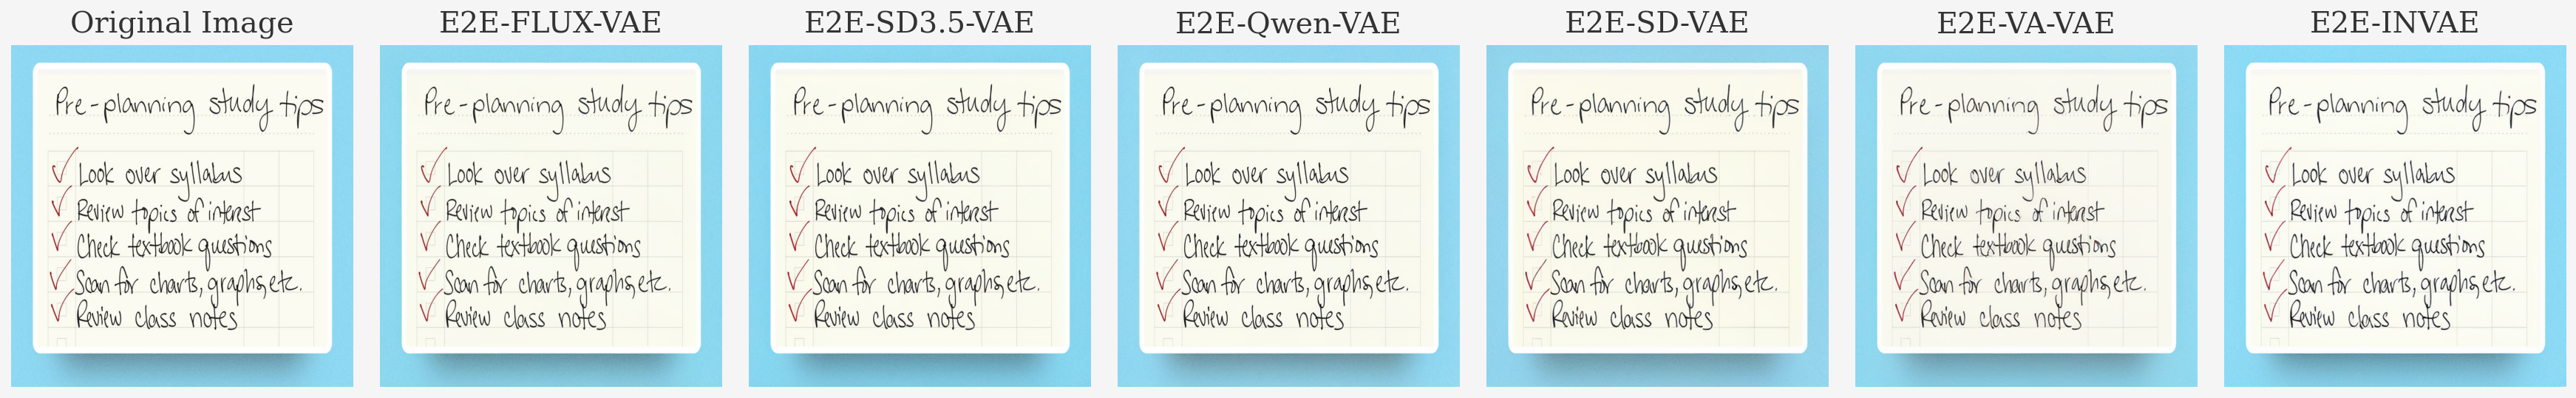 Original Image
Pre-planning study tips
Look over syllabus
Review topics of interest
Check textbook questions
Scan for charts, graphs, etc.
Review class notes
E2E-FLUX-VAE
Pre-planning study tips
Look over syllabus
Review topics of interest
Check textbook questions
Scan for charts, graphs, etc.
Review class notes
E2E-SD3.5-VAE
Pre-planning study tips
Look over syllabus
Review topics of interest
Check textbook questions
Scan for charts, graphs, etc.
Review class notes
E2E-Qwen-VAE
Pre-planning study tips
Look over syllabus
Review topics of interest
Check textbook questions
Scan for charts, graphs, etc.
Review class notes
E2E-SD-VAE
Pre-planning study tips
Look over syllabus
Review topics of interest
Check textbook questions
Scan for charts, graphs, etc.
Review class notes
E2E-VA-VAE
Pre-planning study tips
Look over syllabus
Review topics of interest
Check textbook questions
Scan for charts, graphs, etc.
Review class notes
E2E-INVAE
Pre-planning study tips
Look over syllabus
Review topics of interest
Check textbook questions
Scan for charts, graphs, etc.
Review class notes